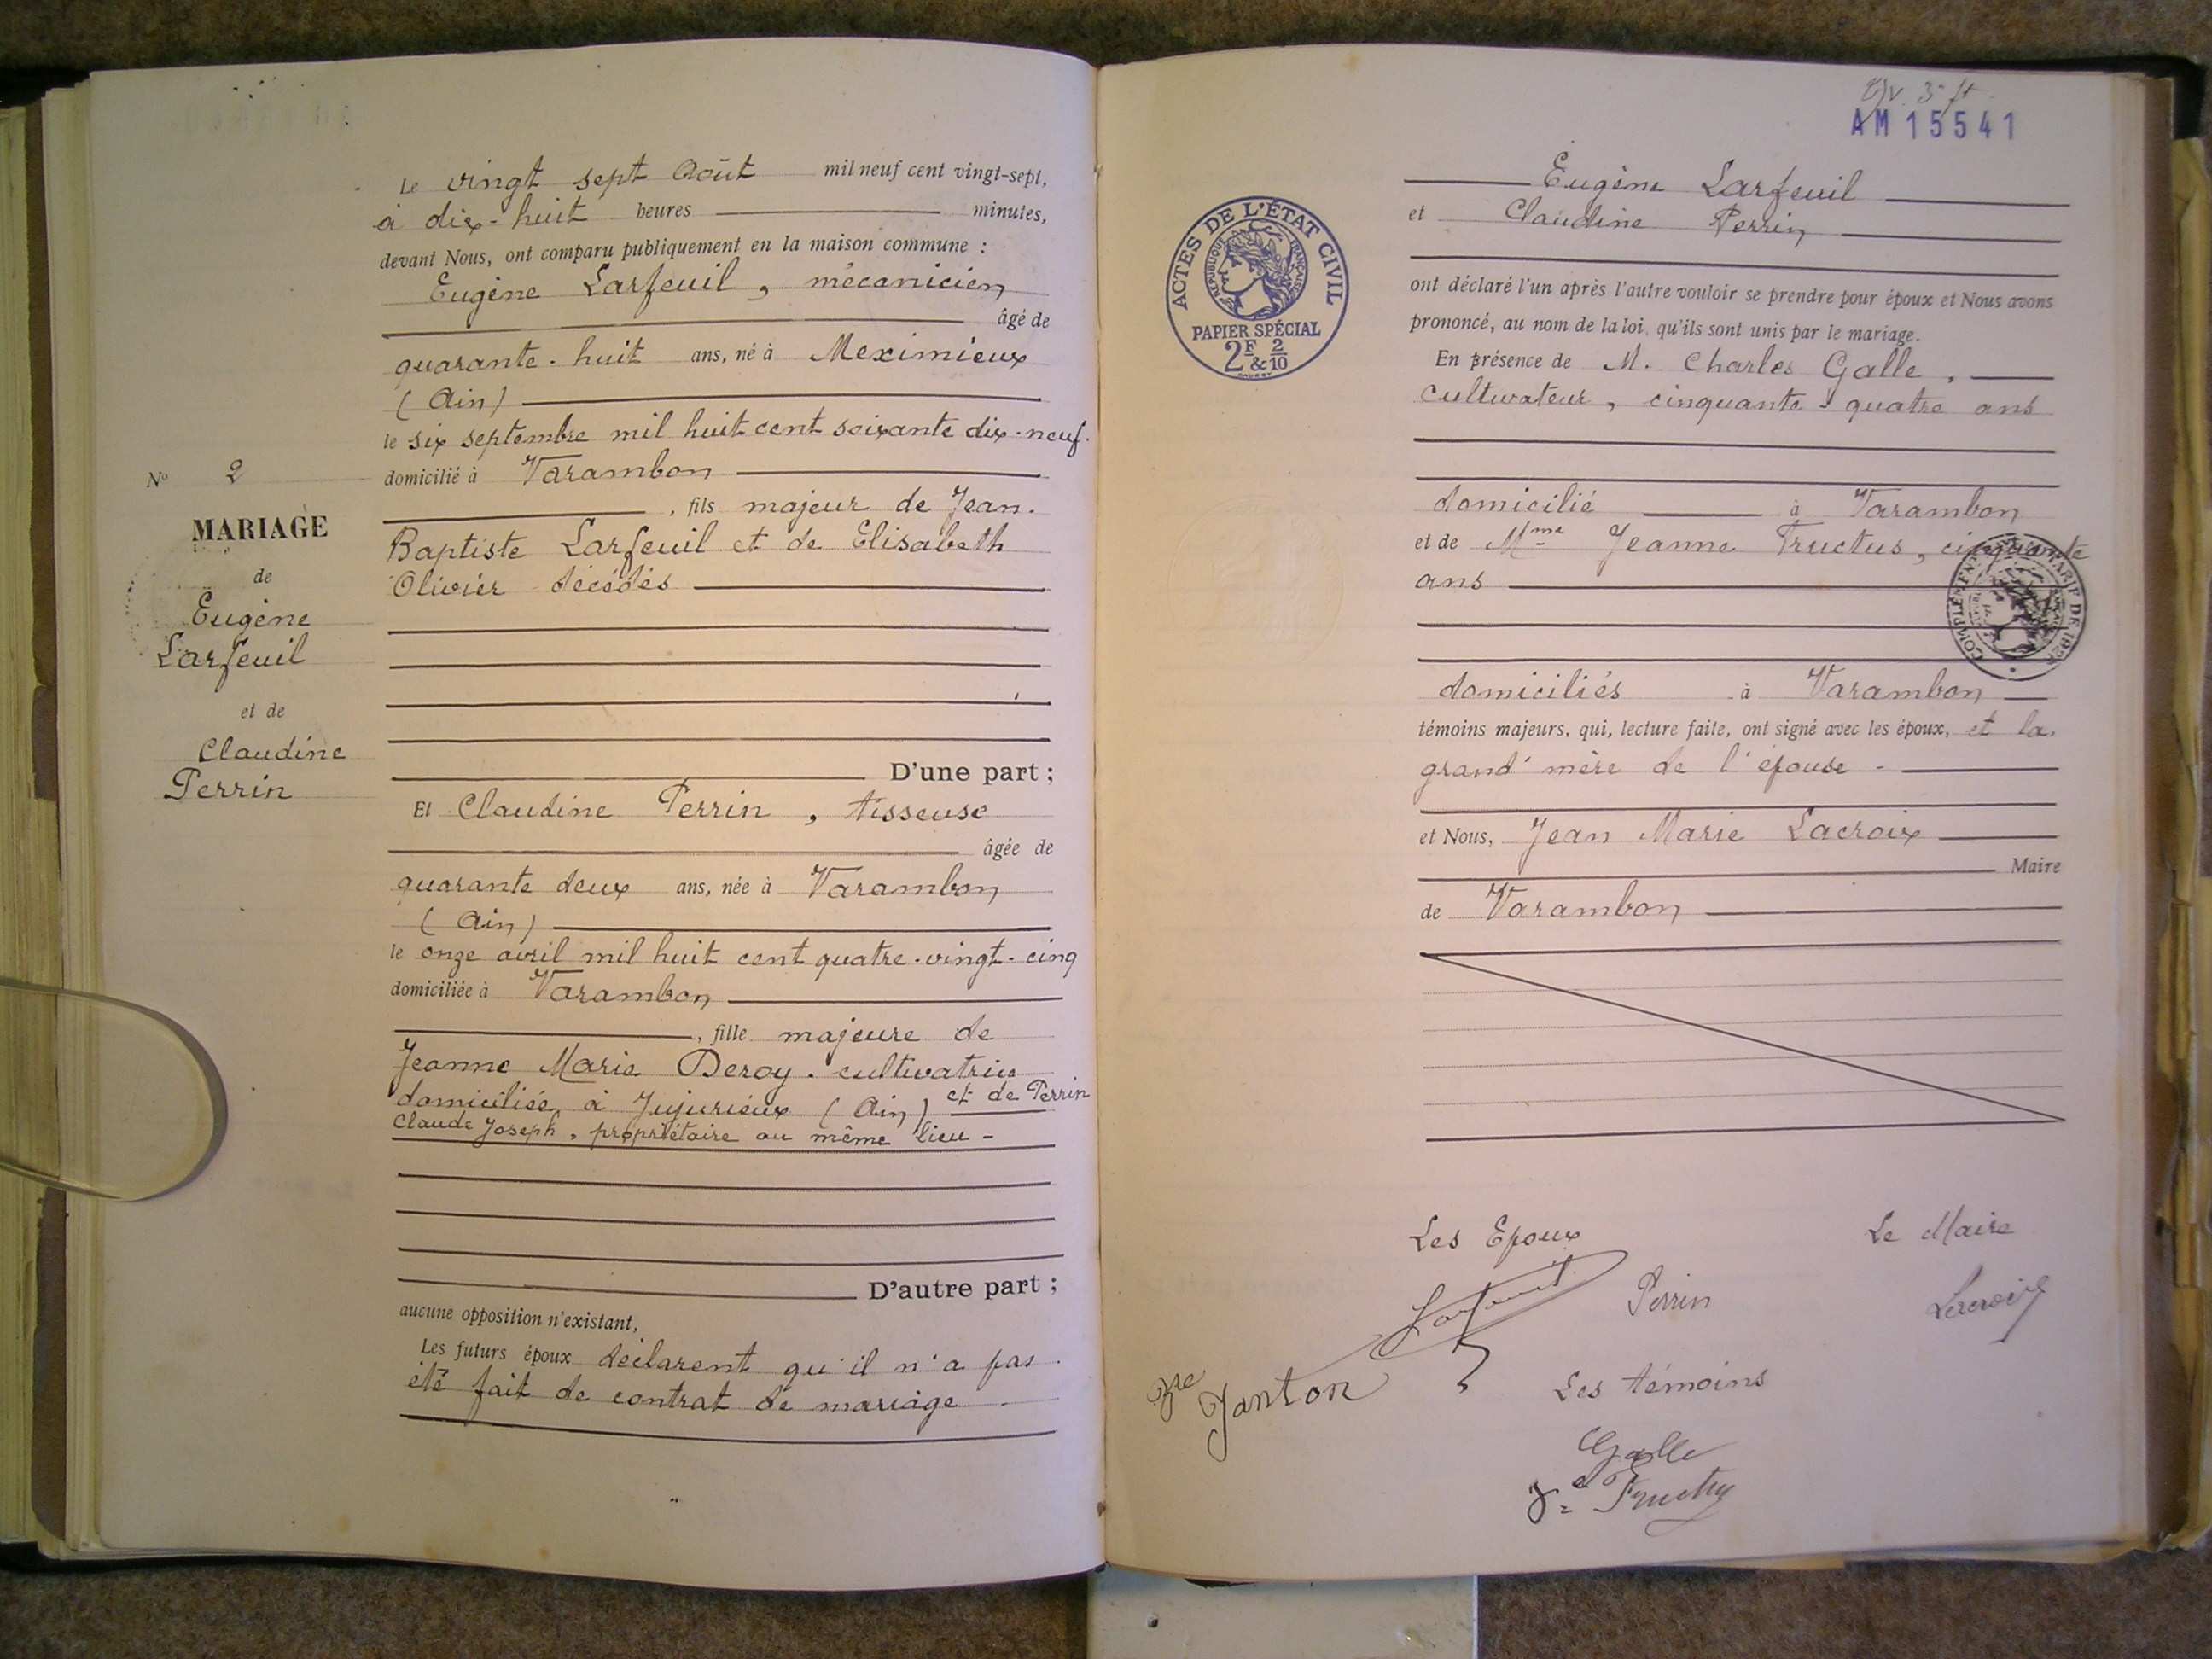 Le vingt sept Août mil neuf cent vingt-sept,
à dix-huit heures minutes,
devant Nous, ont comparu publiquement en la maison commune :
Eugène Larfeuil, mécanicien
âgé de
quarante-huit ans, né à Meximieux
(Ain)
le six septembre mil huit cent soixante dix-neuf.
domicilié à Varambon
, fils majeur de Jean-
Baptiste Larfeuil et de Elisabeth
Olivier décédés
D'une part ;
Et Claudine Perrin, tisseuse
âgée de
quarante deux ans, née à Varambon
(Ain)
le onze avril mil huit cent quatre-vingt-cinq
domiciliée à Varambon
, fille majeure de
Jeanne Marie Deroy. cultivatrice
domiciliée à Jujurieux (Ain) et de Perrin
Claude Joseph, propriétaire au même lieu -
D'autre part ;
aucune opposition n'existant,
Les futurs époux déclarent qu'il n'a pas
été fait de contrat de mariage
No 2
MARIAGE
de
Eugène
Larfeuil
et de
Claudine
Perrin
AM 15541
ACTES DE L'ÉTAT CIVIL
RÉPUBLIQUE FRANÇAISE
PAPIER SPÉCIAL
2F & 2/10
Eugène Larfeuil
et Claudine Perrin
ont déclaré l'un après l'autre vouloir se prendre pour époux et Nous avons
prononcé, au nom de la loi, qu'ils sont unis par le mariage.
En présence de M. Charles Galle,
cultivateur, cinquante-quatre ans
domicilié à Varambon
et de Mme Jeanne Tructus, cinquante
ans
domiciliés à Varambon
témoins majeurs, qui, lecture faite, ont signé avec les époux, et la
grand'mère de l'épouse -
et Nous, Jean Marie Lacroix
Maire
de Varambon
Les Epoux
Le Maire
Perrin
Lacroix
Janton
Les témoins
Galle